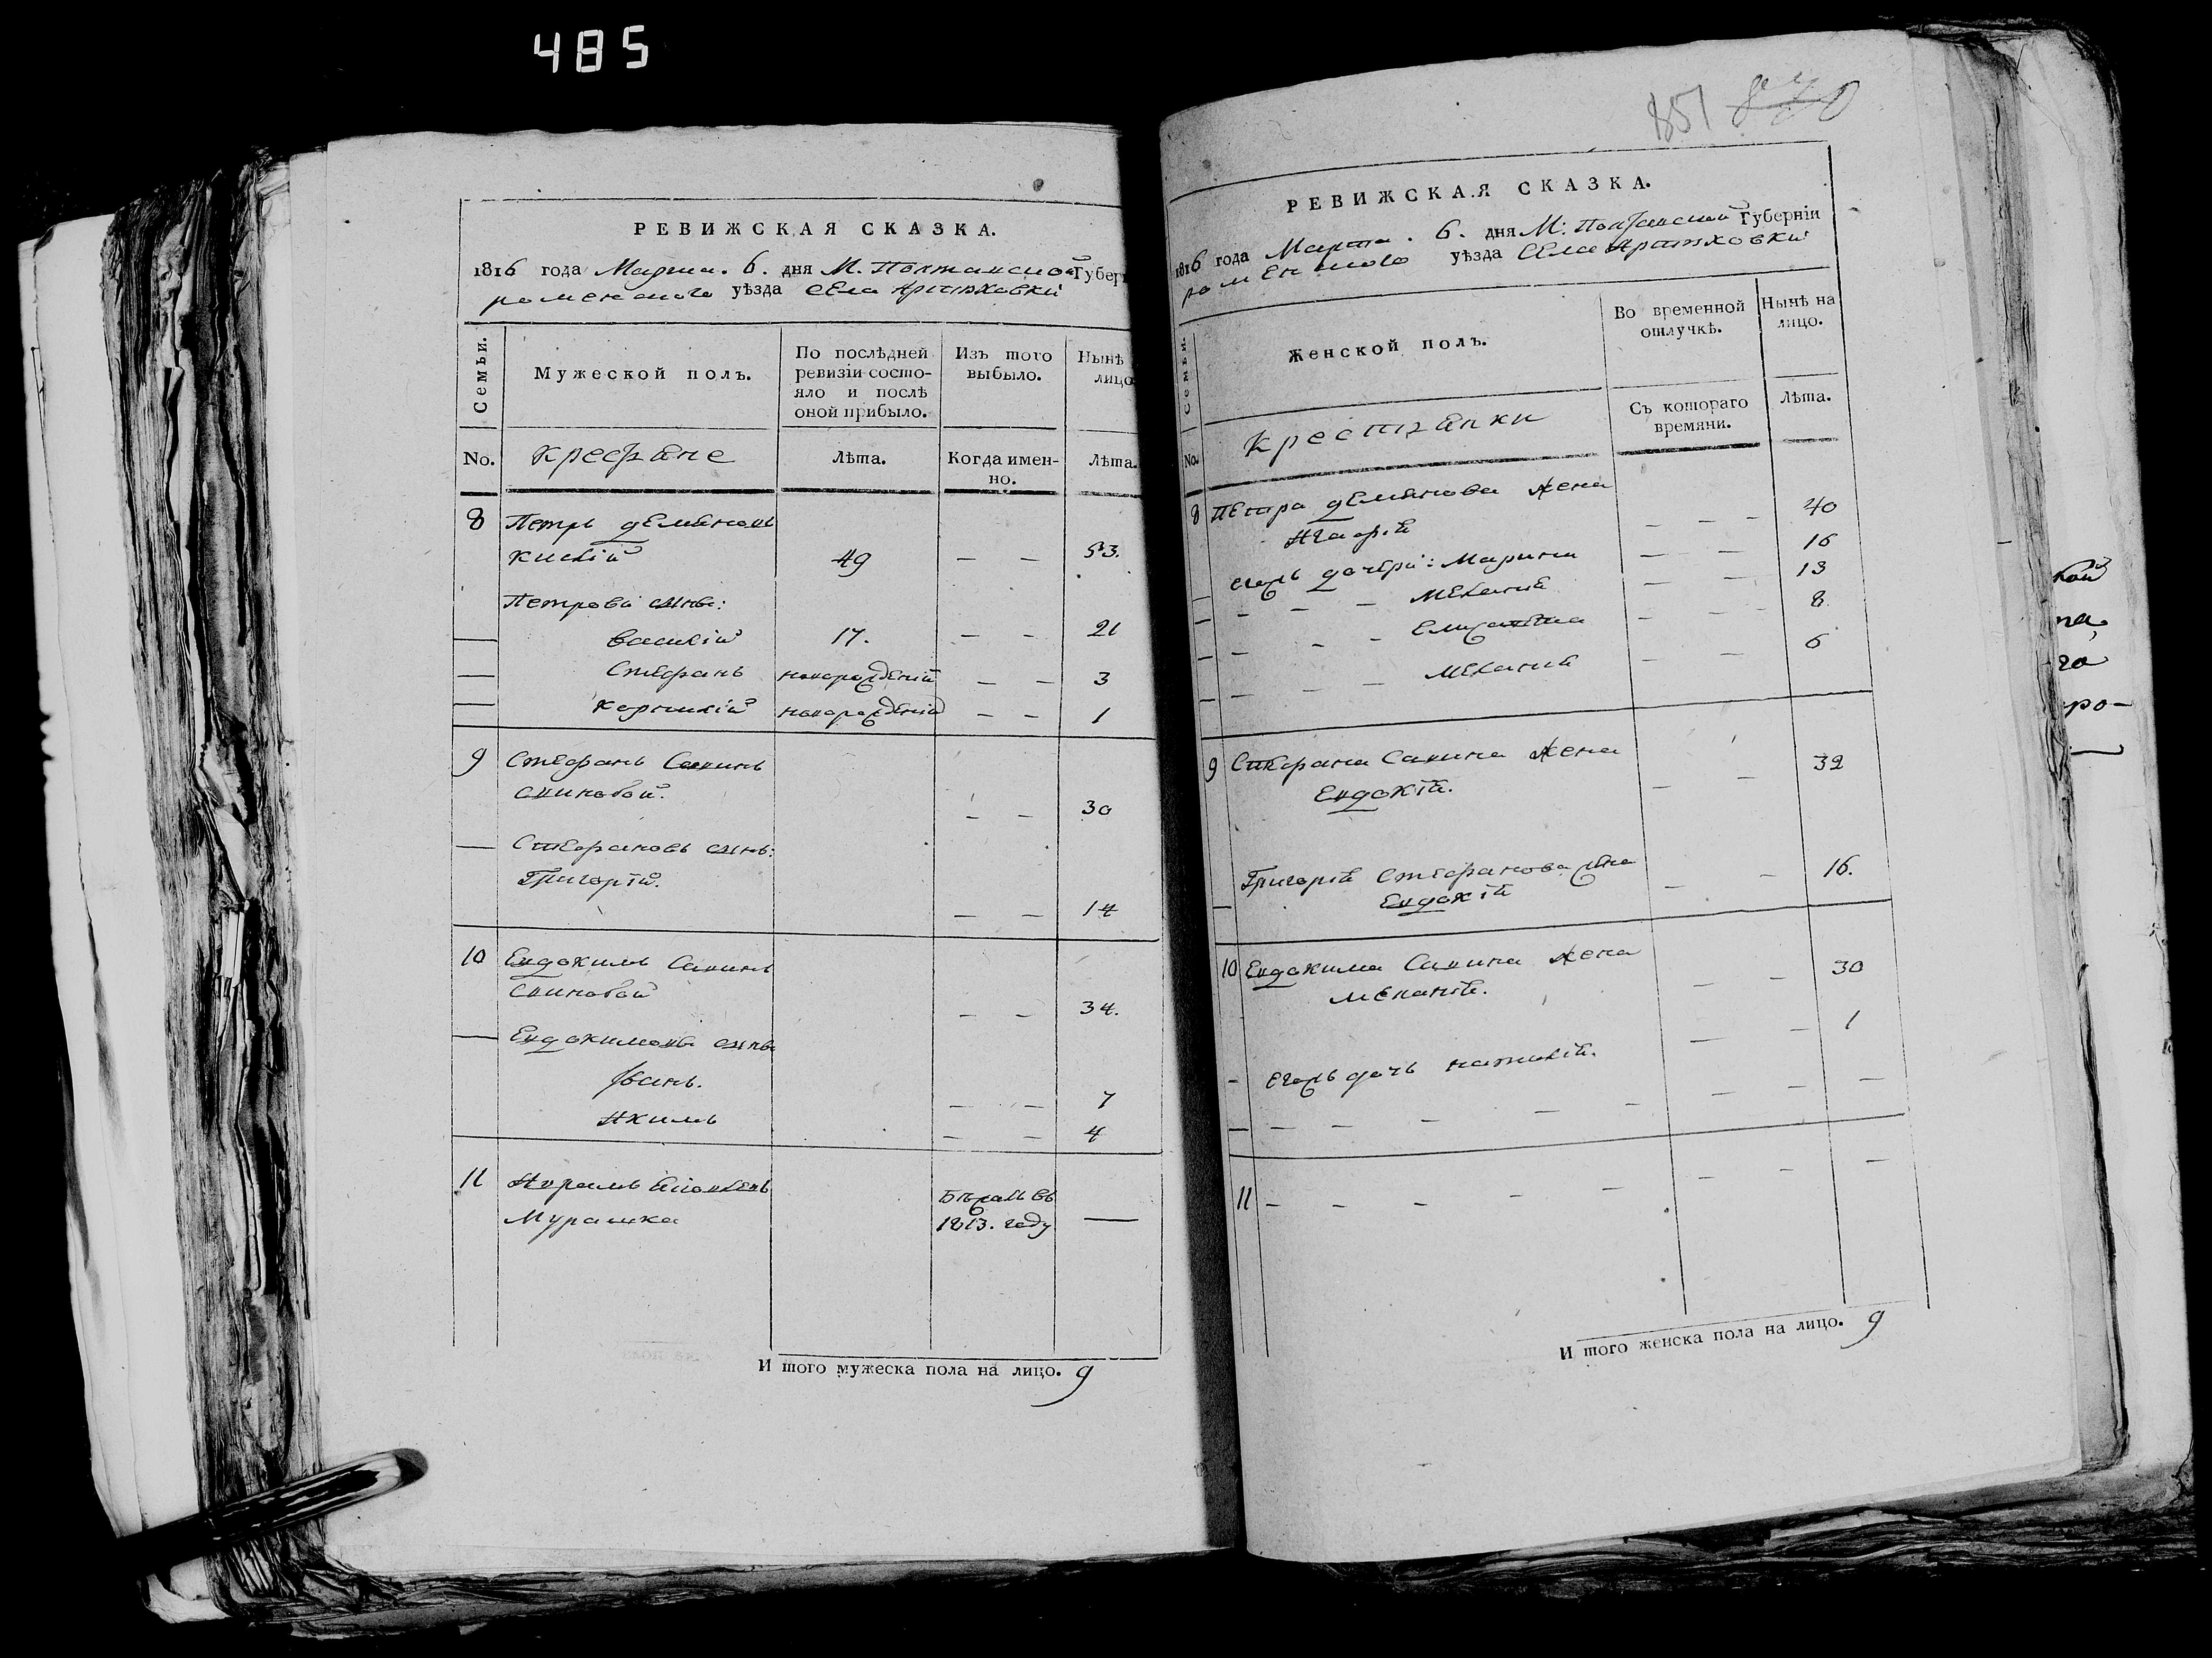 485
РЕВИЖСКАЯ СКАЗКА.
1816 года Марта. 6. дня М. Полтавской Губер
роменского уѣзда села
Семьи.
Мужеской полъ.
По послѣдней
ревизіи состо-
яло и послѣ
оной прибыло.
Изъ того
выбыло.
Нынѣ
лицо
No.
крестяне
Лѣта.
Когда имен-
но.
Лѣта.
8 Петръ демяновъ
49 — — 53.
Петрови сыны:
— Василій 17. — — 21
— Стефанъ новорожденій — — 3
— Корнилій новорожденій — — 1
9 Стефанъ Савинъ
— — 30
— Стефановъ сынъ:
Григорій.
— — 14
10 Евдокимъ Савинъ
— — 34.
— Евдокимовы сыны
Іванъ. — — 7
Акимъ — — 4
11
Мурашка
Бѣжалъ въ
1813. году —
И того мужеска пола на лицо. 9
851 870
РЕВИЖСКАЯ СКАЗКА.
1816 года Марта. 6. дня М. Полтавской Губерніи
роменского уѣзда села
Семьи.
Женской полъ.
Во временной
отлучкѣ.
Нынѣ на
лицо.
No.
крестянки
Съ котораго
времяни.
Лѣта.
8 Петра демянова жена
— — — 40
дочери: Марина — — 16
— — — Меланія — — 13
— — — — — 8
— — — Меланія — — 6
9 Стефана Савина жена
Евдокія. — — 32
— Григорія Стефанова жена
Евдокія — — 16.
10 Евдокима Савина жена
Меланія. — — 30
— дочь наталія. — — 1
— — — — — — — — —
11 — — — — — — — —
И того женска пола на лицо. 9